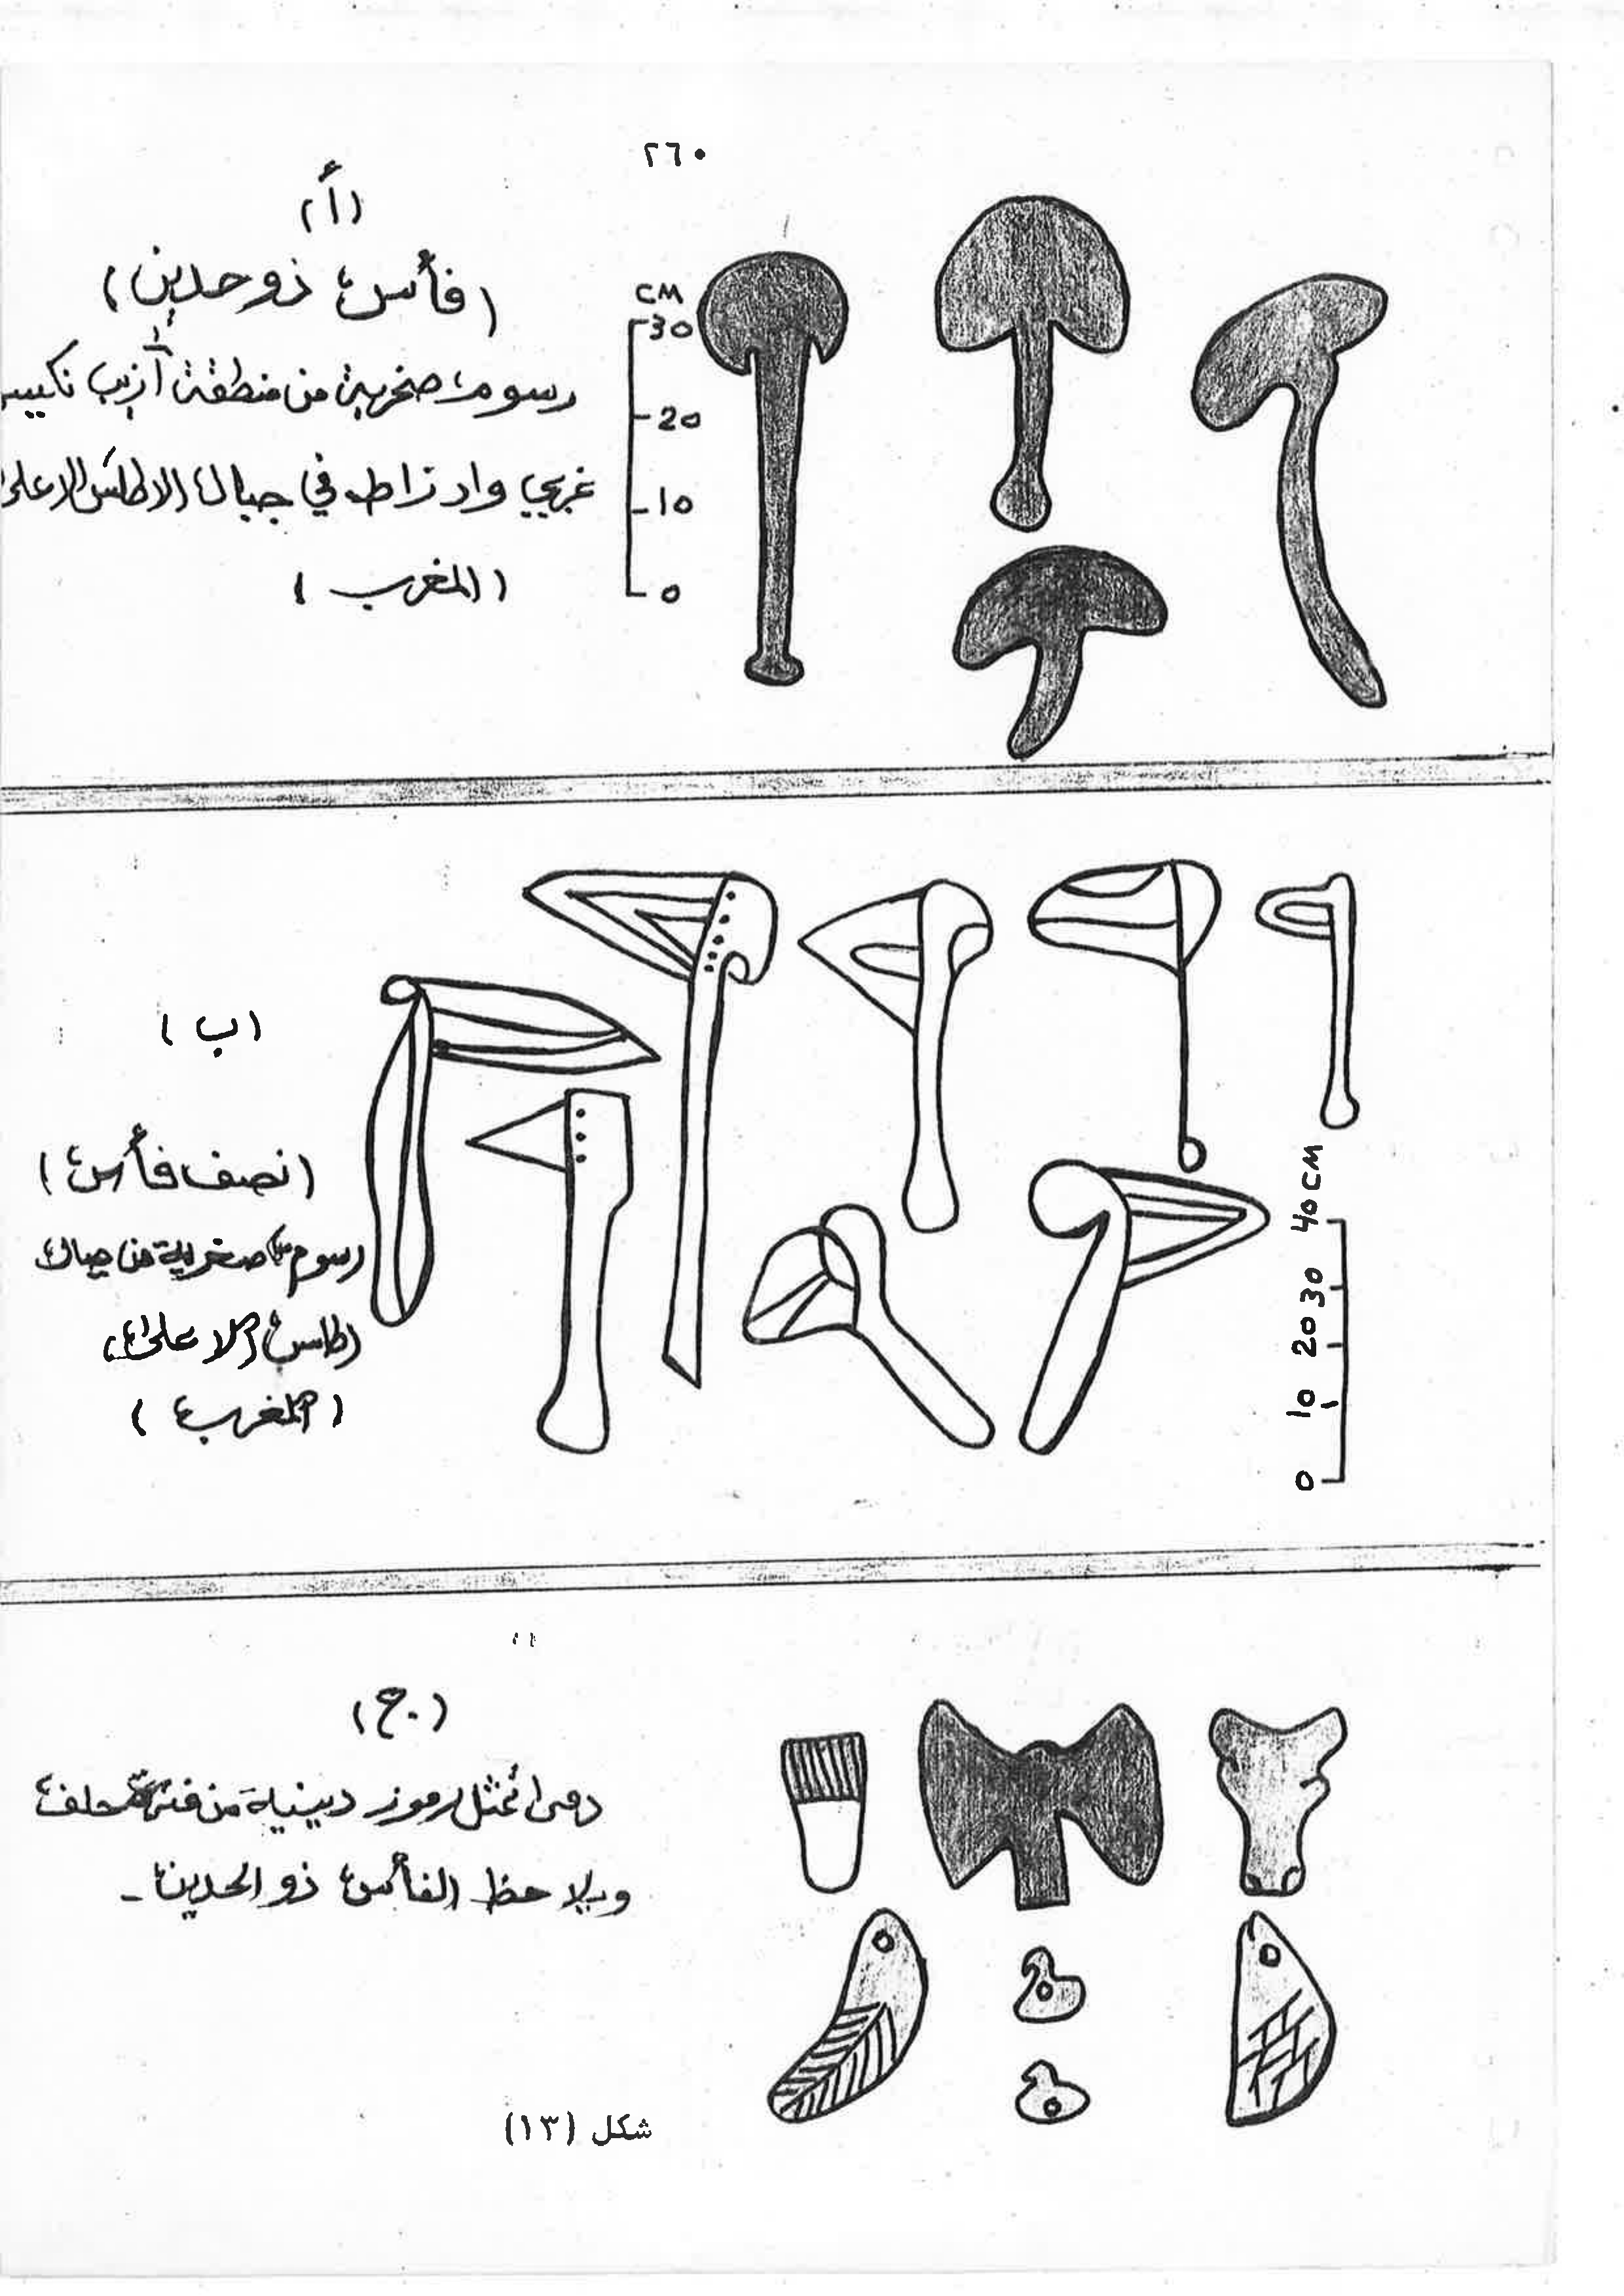 ٢٦٠
(أ)
(فأس ذو حدين)
رسوم صخرية من منطقة آزيب نكيس
غربي واد زاط في جبال الاطلس الاعلى
(المغرب)
CM
30
20
10
0
(ب)
(نصف فأس)
رسوم صخرية من جبال
اطلس الاعلى
(المغرب)
40 CM
30
20
10
0
(ج)
دمى تمثل رموز دينية من فترة حلف
ويلاحظ الفأس ذو الحدين -
شكل (١٣)